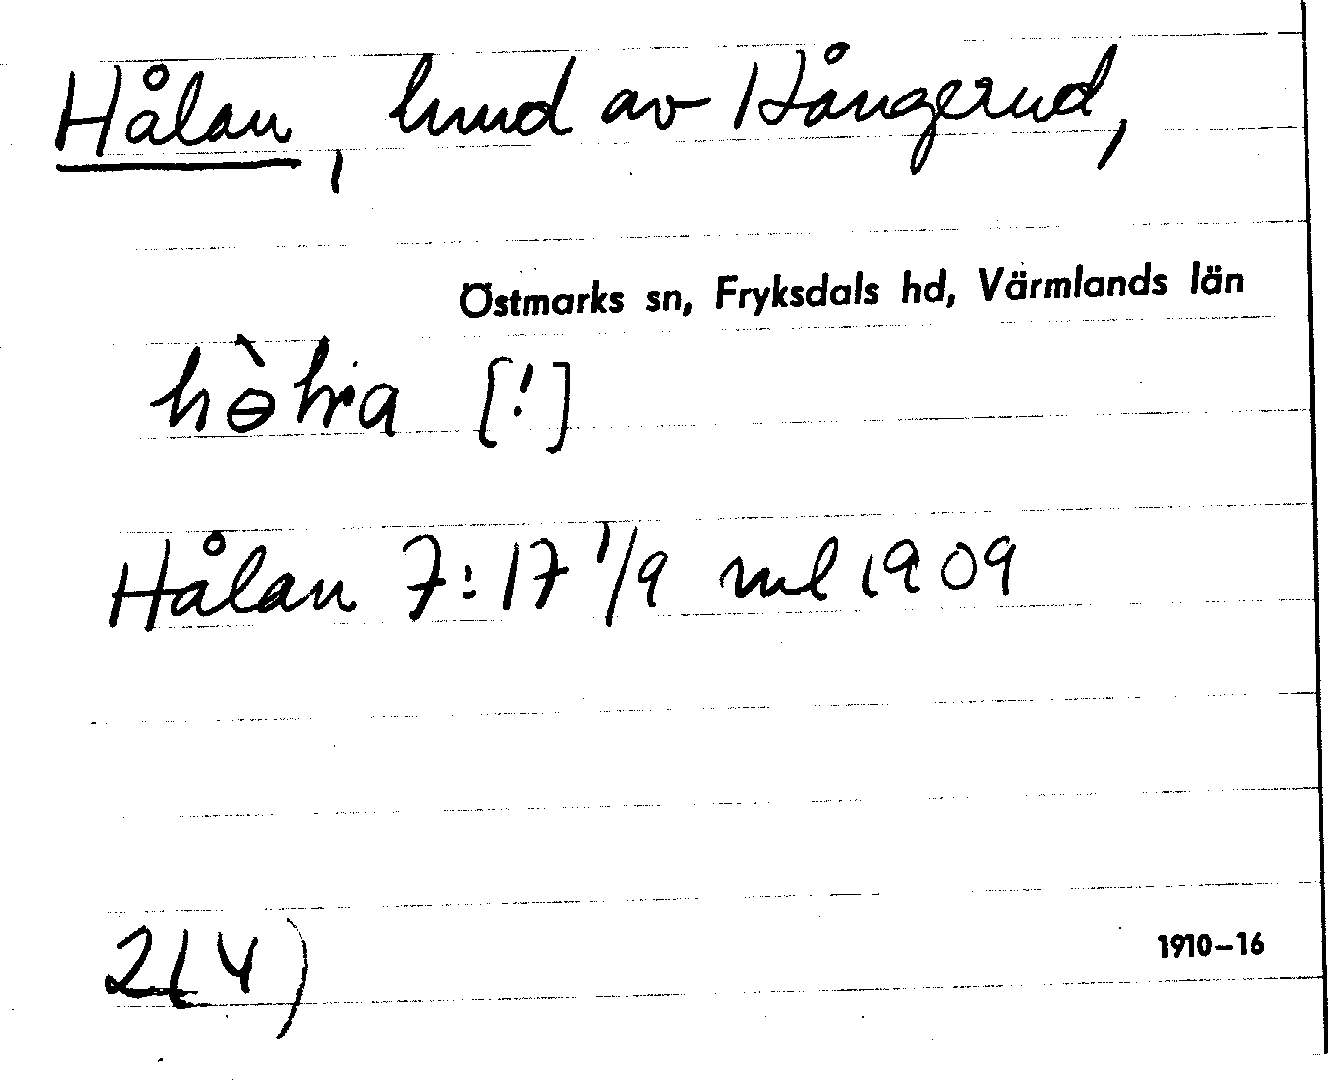 Hålan, hmd av Hångerud,
Östmarks sn, Fryksdals hd, Värmlands län
[!]
Hålan 7:17 1/9 ml 1909
2(4)
1910-16